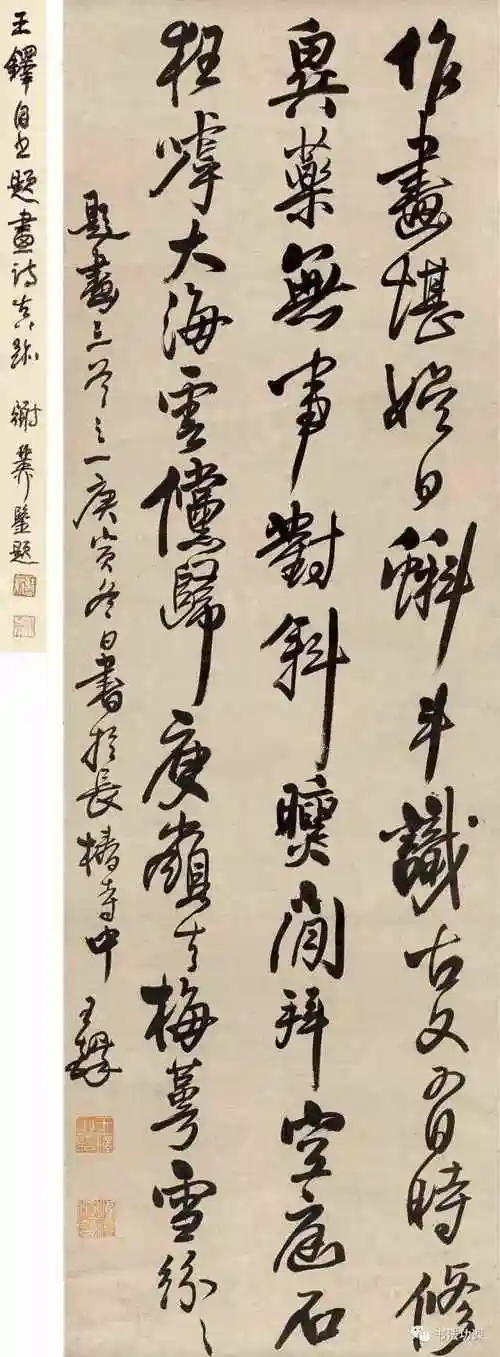 作畫堪娛日蝌斗識古文有時修
異藥無事對斜曛閒拜空庭石
狂嘑大海雲儻歸庾嶺去梅萼雪紛〻
題畫三首之一庚寅冬日書於長椿寺中 王鐸
王鐸自書題畫詩真跡 謝鑒題